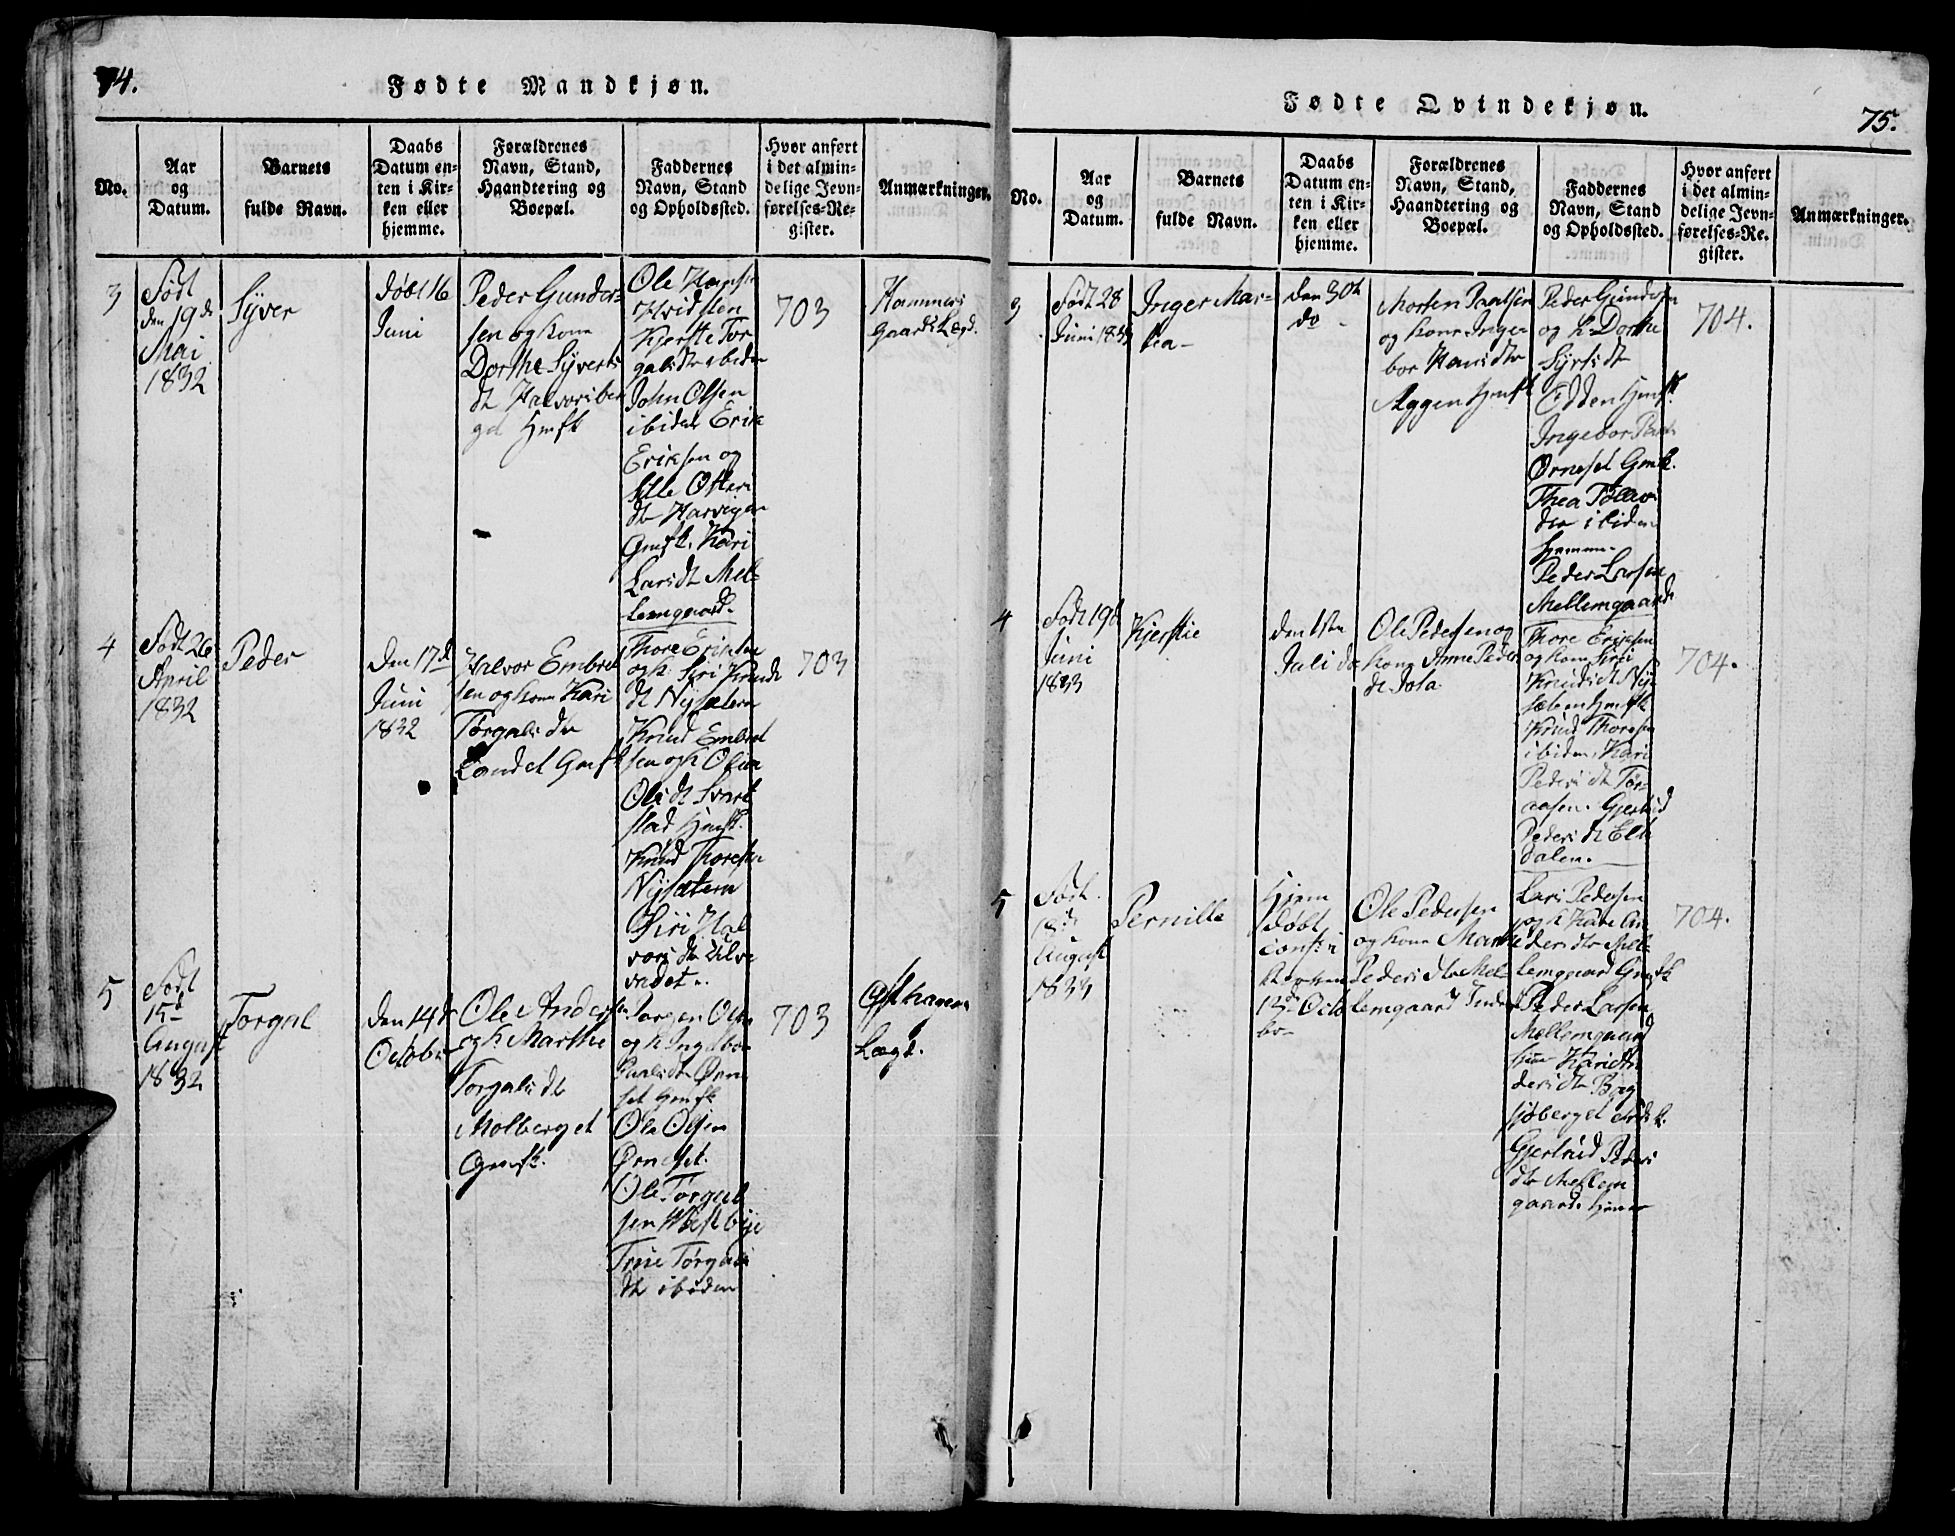 74.
Fødte Mandkjøn.
No.
Aar
og
Datum.
Barnets
fulde Navn.
Daabs
Datum en-
ten i Kir-
ken eller
hjemme.
Forældrenes
Navn, Stand,
Haandtering og
Boepæl.
Faddernes
Navn, Stand
og Opholdssted.
Hvor anført
i det almin-
delige Jevn-
førelses-Re-
gister.
Anmærkninger.
3
Født
den 19de
Mai
1832
Syver
døbt 16
Juni
Peder Gunder-
sen og kone
Dorthe Syverts
dt Halvorsber
get Hmsk
Ole Hansen
Kjerste Tor
galsdtr ibidem
John Olsen
ibidem Erik
Eriksen og
dtr Harvigen
Gmsk. Kari
Larsdt Mel-
lemgaard.
703
Hammers
gaards Lægd.
4
Født 26
April
1832
Peder
Den 17de
Juni
1832
Halvor Embret
sen og kone Kari
Torgalsdtr
Landet Gmsk
Thore Eriksen
og k. Siri Knuds
dt Nysætern
Knud Embret
sen og k Oline
Olsdt Svart
stad Hmsk.
Knud Thoresen
Nysætern
Siri Hal
vorsdtr Ulve
vadet.
703
5
Født
15de
August
1832
Torgal
den 14de
October
Ole Andersen
og k. Marthe
Torgalsdt
Molberget
Gmsk.
Jørgen Olsen
og k Ingebor
Paulsdtr Ørne
set Gmsk
Ole Olsen
Ørneset.
Ole Torgal
sen Westbye
Trine Torgals
dtr ibidem
703
Østhagens
Lægd.
Fødte Qvindekjøn.
75.
No.
Aar
og
Datum.
Barnets
fulde Navn.
Daabs
Datum en-
ten i Kir-
ken eller
hjemme.
Forældrenes
Navn, Stand,
Haandtering og
Boepæl.
Faddernes
Navn, Stand
og Opholdssted.
Hvor anført
i det almin-
delige Jevn-
førelses-Re-
gister.
Anmærkninger.
3
Født 28
Juni 1833
Inger Mar-
thea-
den 30te
do
Morten Paalsen
og kone Inge
bor Hansdtr
Aggen Hmsk
Peder Gundersen
og k. Dorthe
Syvertsdt
Ingebor
Ørneset Gmsk.
Thea
dtr ibidem
hjemme.
Peder Larsen
Mellemgaard
704.
4
Født 19de
Juni
1833
Kjerstie
den 1ste
Juli do
Ole Pedersen og
kone Anne Peders
dt
Thore Eriksen
og kone Siri
Knudsdt Ny
sæteren Hmsk
Knud Thoresen
ibidem, Kari
Pedersdt Tør-
aasen. Gjertrud
Pedersdt
dalen.
704.
5
Født
August
1833
Pernille
Hjem
døbt
conf. i
Kirken
13de Octo
ber
Ole Pedersen
og kone Marthe
Pedersdtr Mel-
lemgaard
Lars Pedersen
og k Kari
dersdtr Mel-
lemgaard Gmsk
Peder Larsen
Mellemgaard
dersdtr
Gjertrud Peders
dtr Mellem
gaard. hjemme
704.